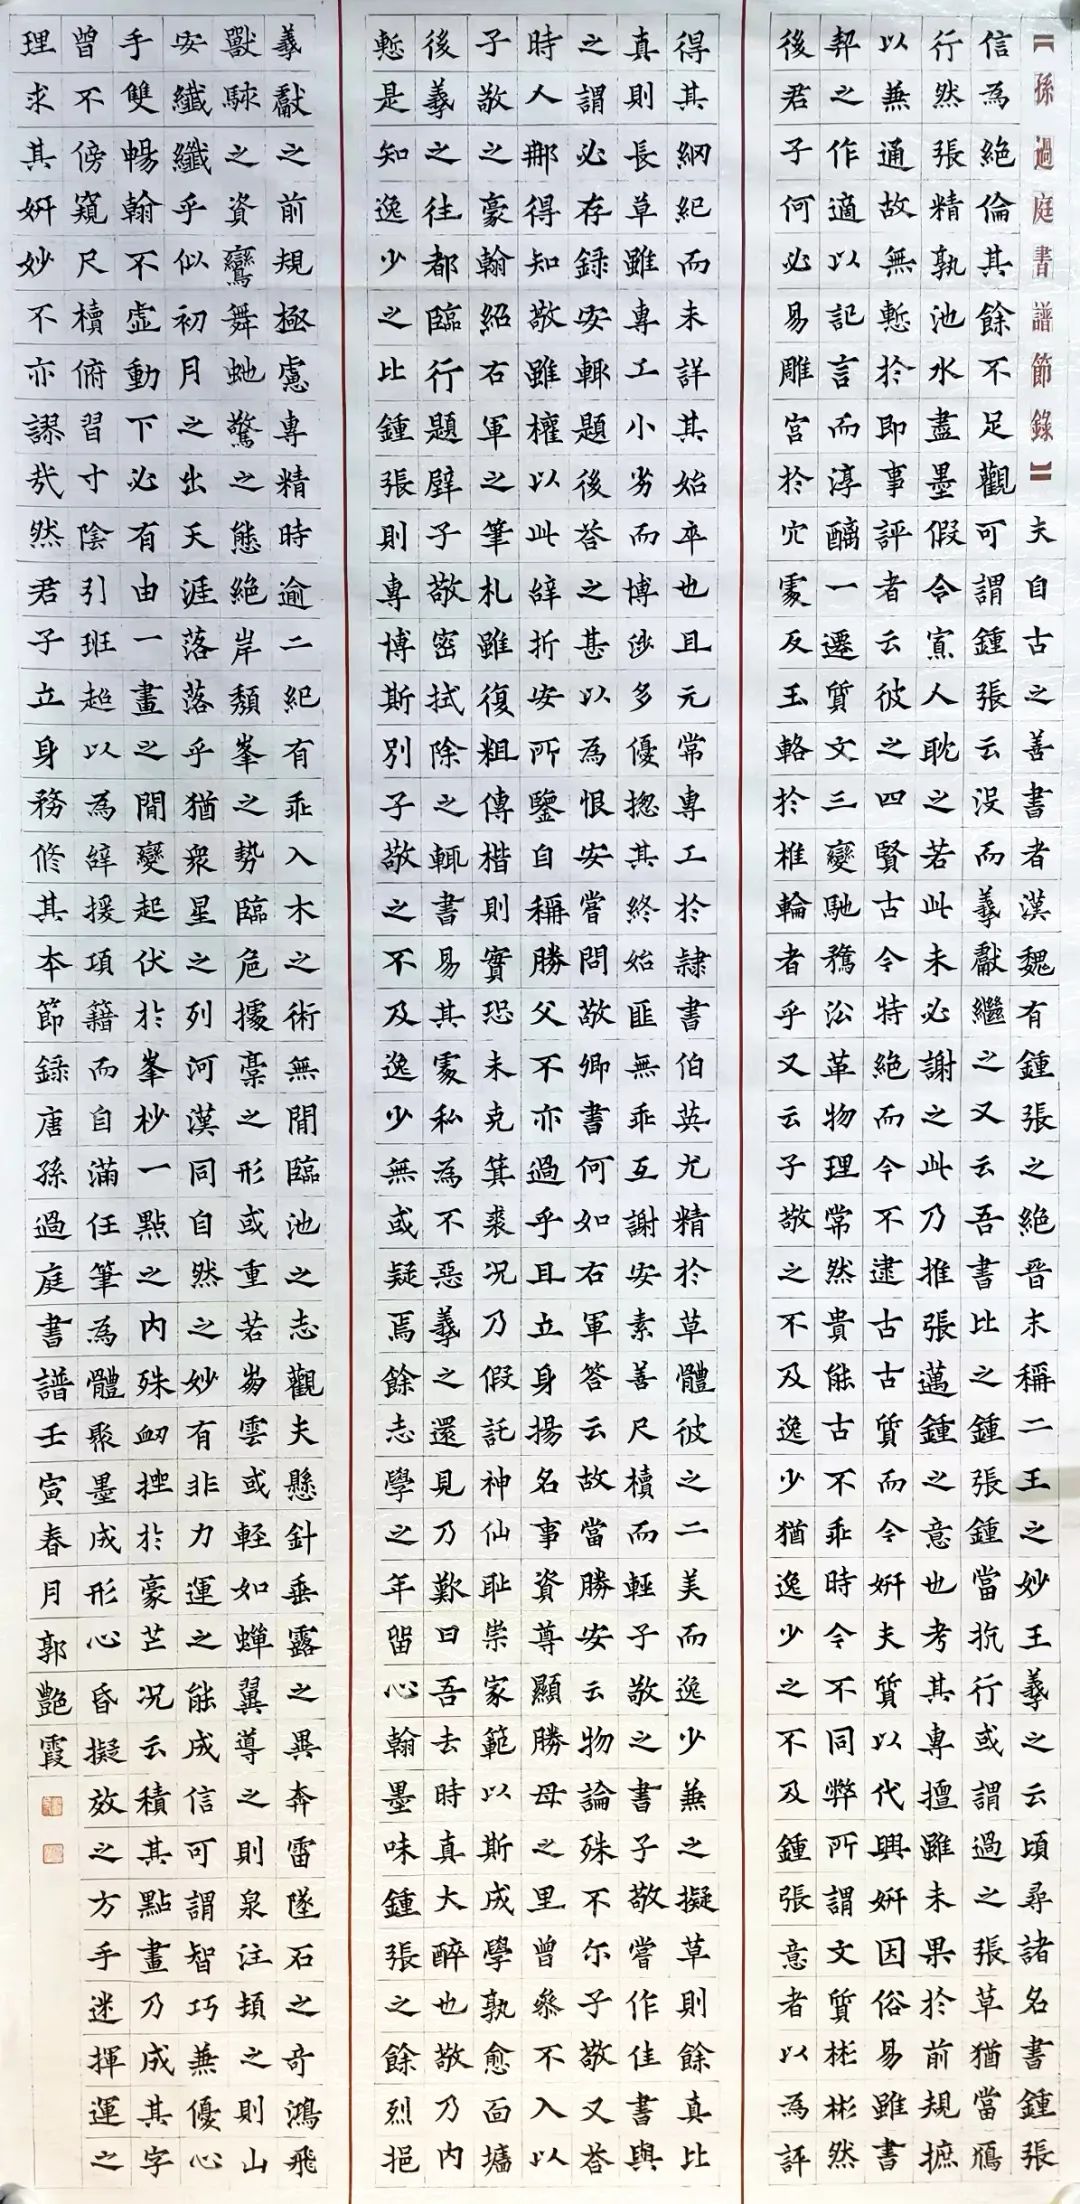 【孫過庭書譜節錄】夫自古之善書者漢魏有鍾張之絕晉末稱二王之妙王羲之云頃尋諸名書鍾張
信為絕倫其餘不足觀可謂鍾張云沒而羲獻繼之又云吾書比之鍾張鍾當抗行或謂過之張草猶當鴈
行然張精孰池水盡墨假令寡人耽之若此未必謝之此乃推張邁鍾之意也考其專擅雖未果於前規摭
以兼通故無慙於即事評者云彼之四賢古今特絕而今不逮古古質而今妍夫質以代興妍因俗易雖書
契之作適以記言而淳醨一遷質文三變馳騖沿革物理常然貴能古不乖時今不同弊所謂文質彬彬然
後君子何必易雕宮於穴處反玉輅於椎輪者乎又云子敬之不及逸少猶逸少之不及鍾張意者以為評
得其綱紀而未詳其始卒也且元常專工於隸書伯英尤精於草體彼之二美而逸少兼之擬草則餘真比
真則長草雖專工小劣而博涉多優揔其終始匪無乖互謝安素善尺櫝而輕子敬之書子敬嘗作佳書與
之謂必存録安輒題後荅之甚以為恨安嘗問敬卿書何如右軍答云故當勝安云物論殊不尔子敬又荅
時人那得知敬雖權以此辭折安所鑒自稱勝父不亦過乎且立身揚名事資尊顯勝母之里曾參不入以
子敬之豪翰紹右軍之筆札雖復粗傳楷則實恐未克箕裘況乃假託神仙耻崇家範以斯成學孰愈面墻
後羲之往都臨行題壁子敬密拭除之輒書易其處私為不惡羲之還見乃歎曰吾去時真大醉也敬乃內
慙是知逸少之比鍾張則專博斯別子敬之不及逸少無或疑焉餘志學之年留心翰墨味鍾張之餘烈挹
羲獻之前規極慮專精時逾二紀有乖入木之術無間臨池之志觀夫懸針垂露之異奔雷墜石之奇鴻飛
獸駭之資鸞舞虵驚之態絕岸頹峯之勢臨危據槀之形或重若崩雲或輕如蟬翼導之則泉注頓之則山
安纖纖乎似初月之出天涯落落乎猶衆星之列河漢同自然之妙有非力運之能成信可謂智巧兼優心
手雙暢翰不虛動下必有由一畫之間變起伏於峯杪一點之內殊衂挫於豪芒況云積其點畫乃成其字
曾不傍窺尺櫝俯習寸陰引班超以為辭援項籍而自滿任筆為體聚墨成形心昏擬效之方手迷揮運之
理求其妍妙不亦謬哉然君子立身務修其本節錄唐孫過庭書譜壬寅春月郭艷霞